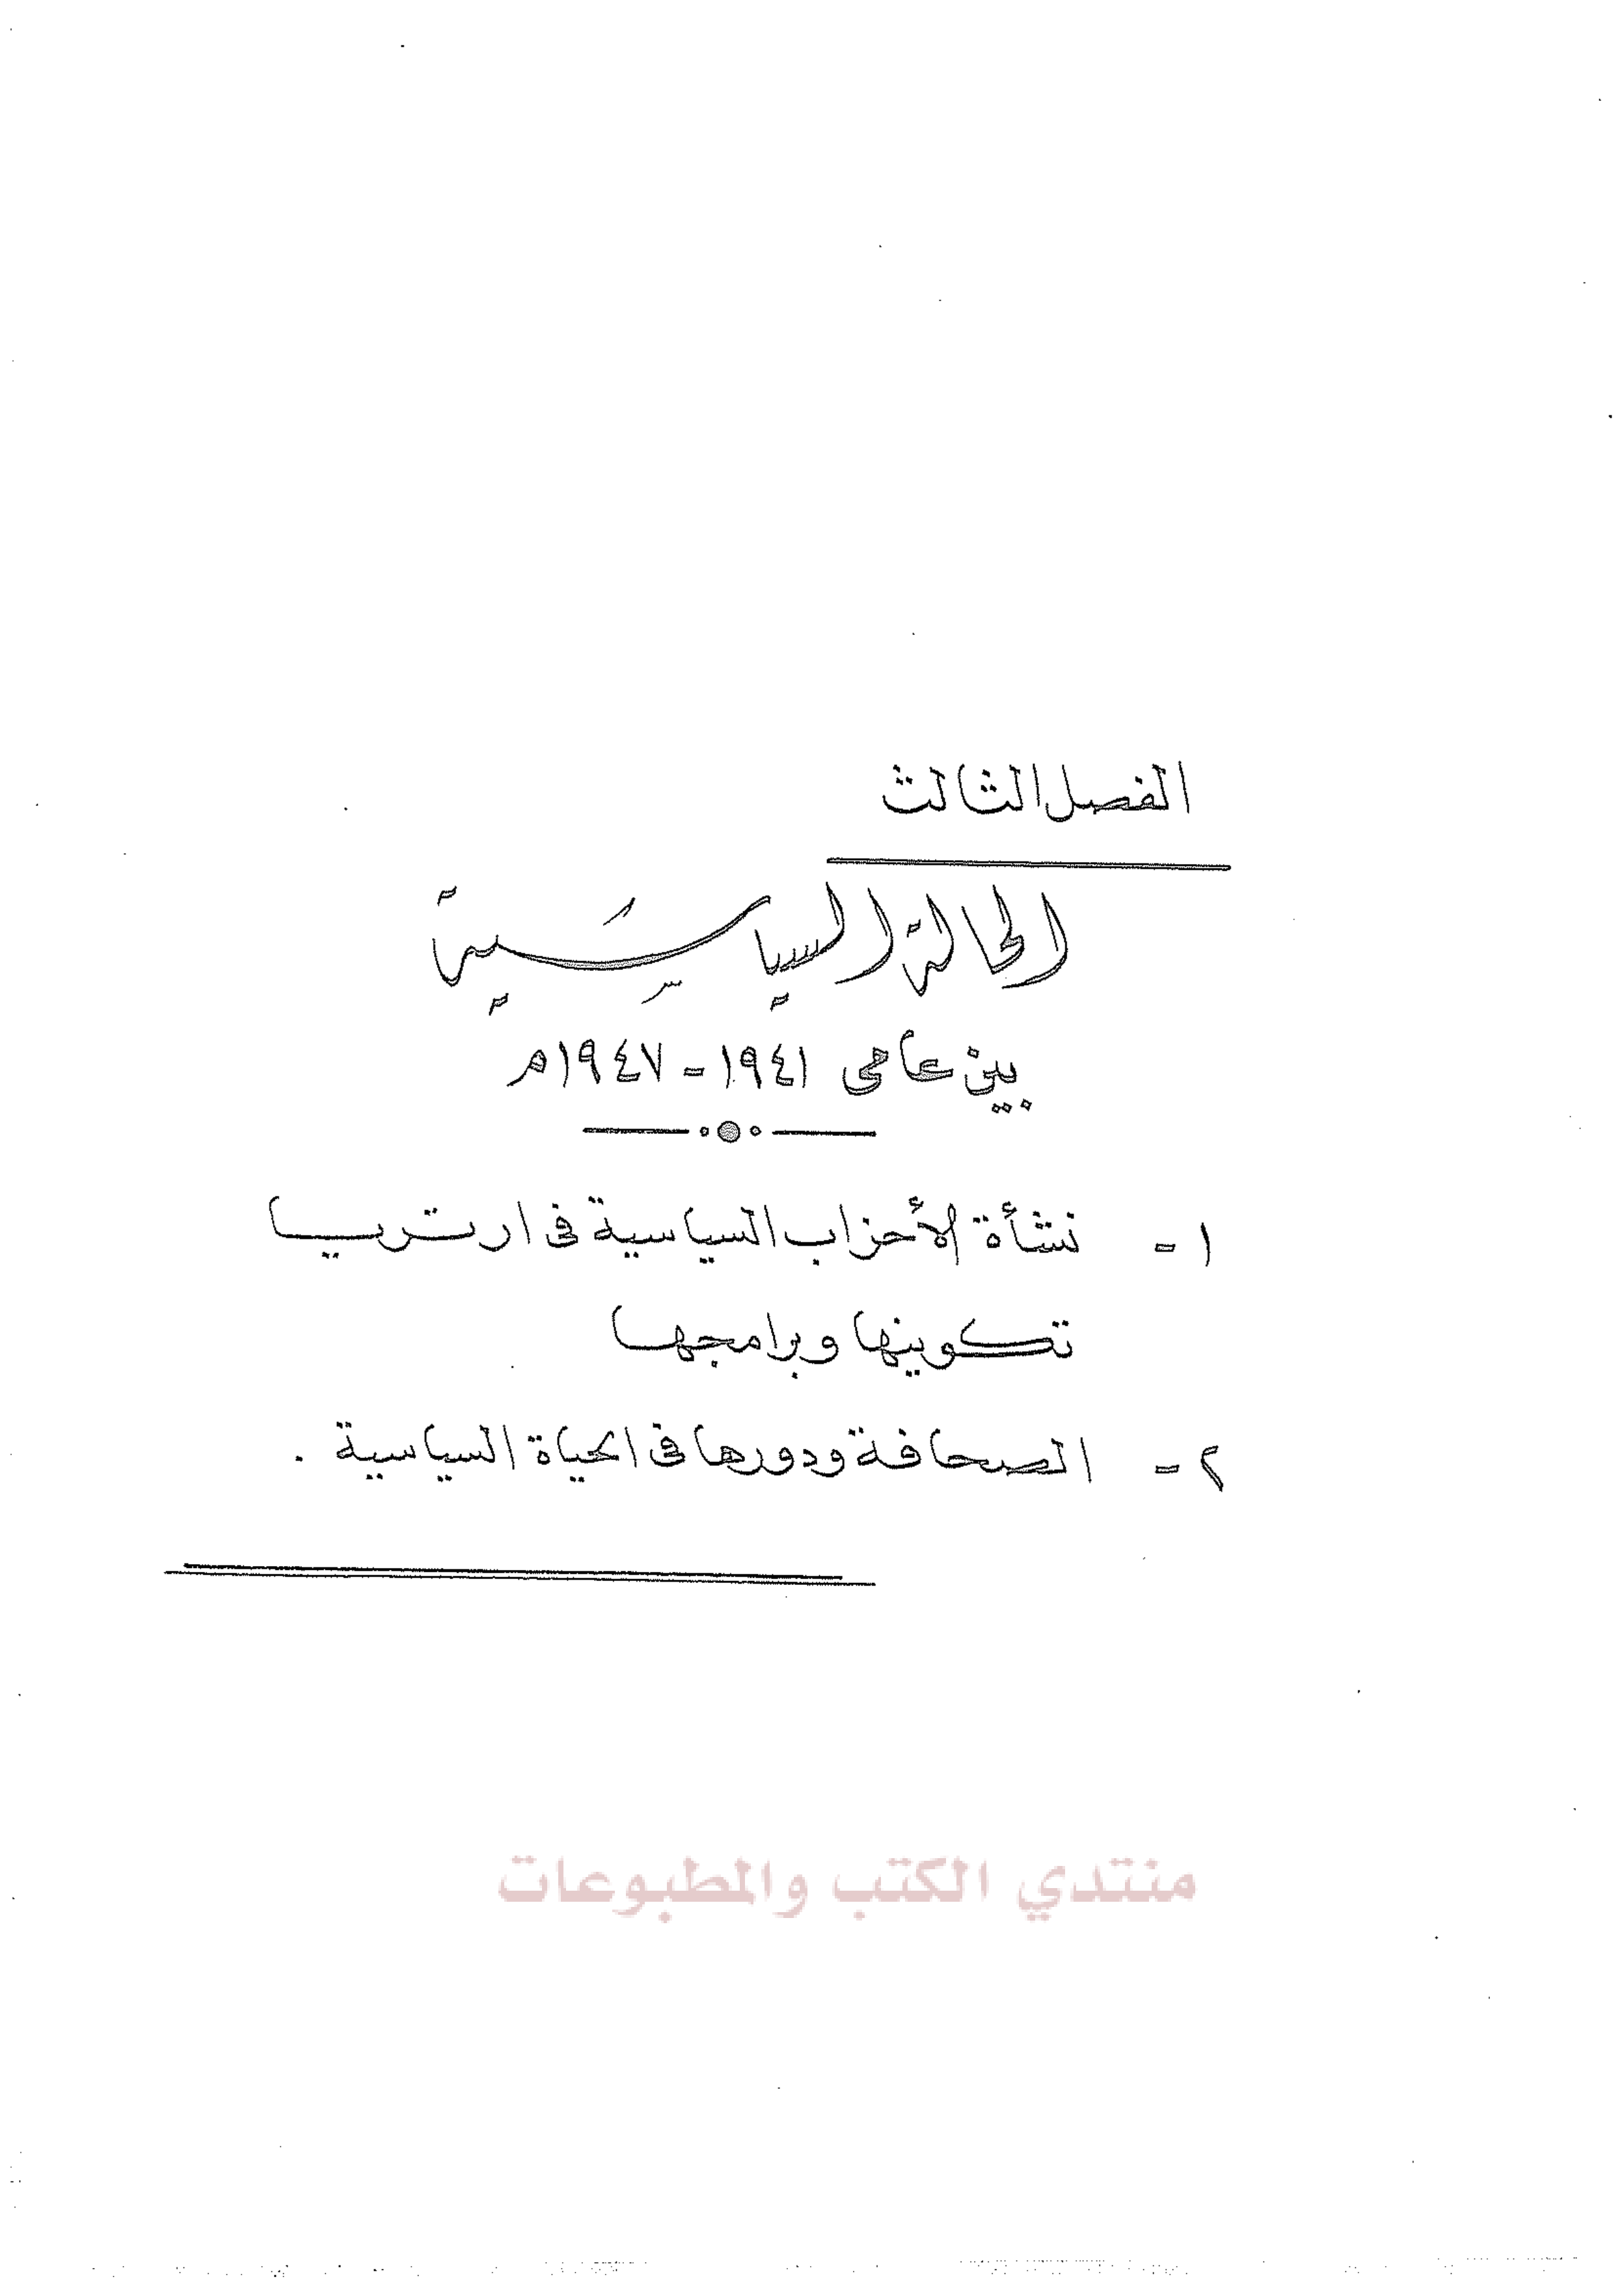 الفصل الثالث
الحالة السياسية
بين عامى ١٩٤١ - ١٩٤٧م
١ - نشأة الأحزاب السياسية فى ارتريا
تكوينها وبرامجها
٢ - الصحافة ودورها فى الحياة السياسية .
منتدي الكتب والمطبوعات